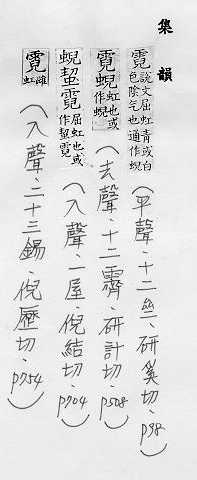 集韻
霓 說文屈虹青或白色陰氣也通作蜺(平聲、十二亝、研奚切、p98)
霓蜺 虹也或作蜺(去聲、十二霽、研計切、p508)
蜺蛪霓 屈虹也或作蛪霓(入聲、一屋、倪結切、p704)
霓 雌虹(入聲、二十三錫、倪歷切、p754)